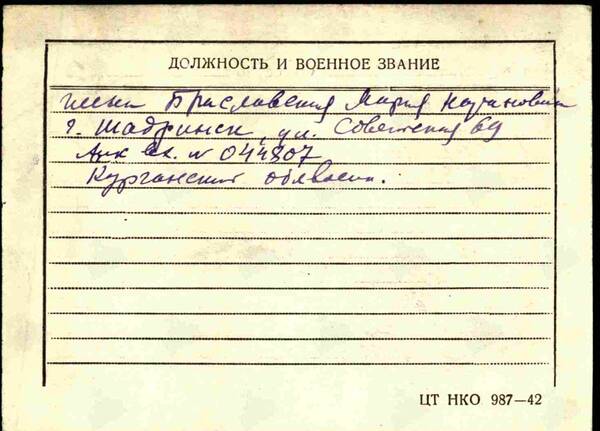 ДОЛЖНОСТЬ И ВОЕННОЕ ЗВАНИЕ
Браславская Мария
г. Шадринск, ул. Советская 69
вх. № 044807
Курганский области.
ЦТ НКО 987—42